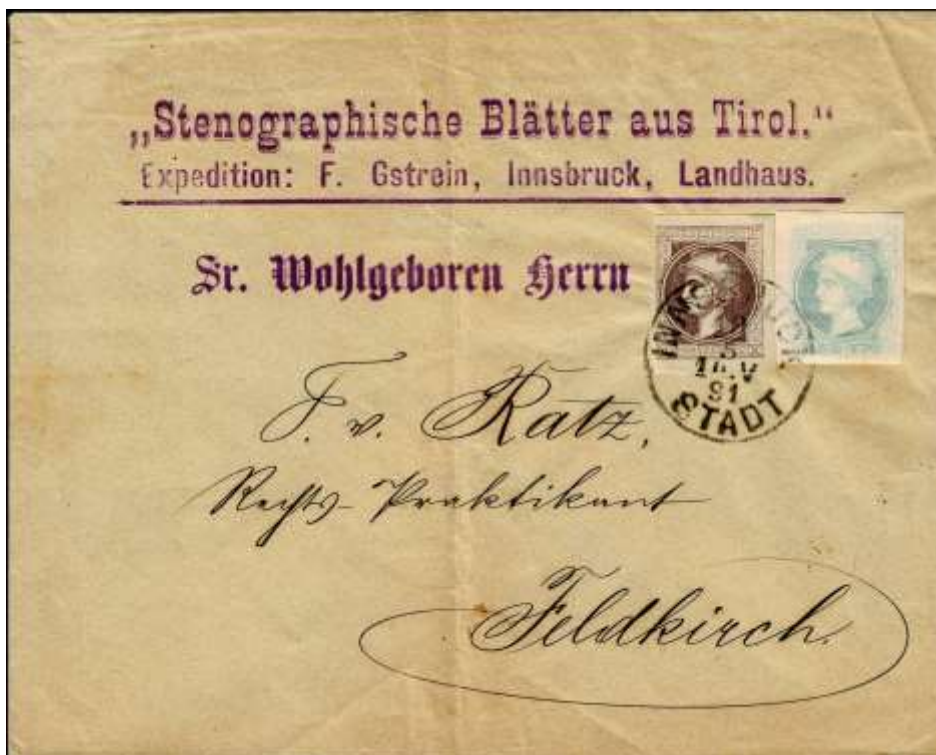 „Stenographische Blätter aus Tirol.“
Expedition: F. Gstrein, Innsbruck, Landhaus.
Sr. Wohlgeboren Herrn
F. v. Ratz,
Rechts-Praktikant
Feldkirch.
91
STADT